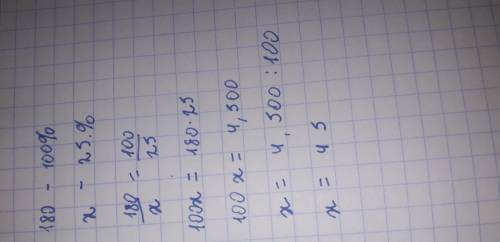 180 - 100%
x - 25.%
180/x = 100/25
100x = 180·25
100 x = 4,500
x = 4,500 : 100
x = 45